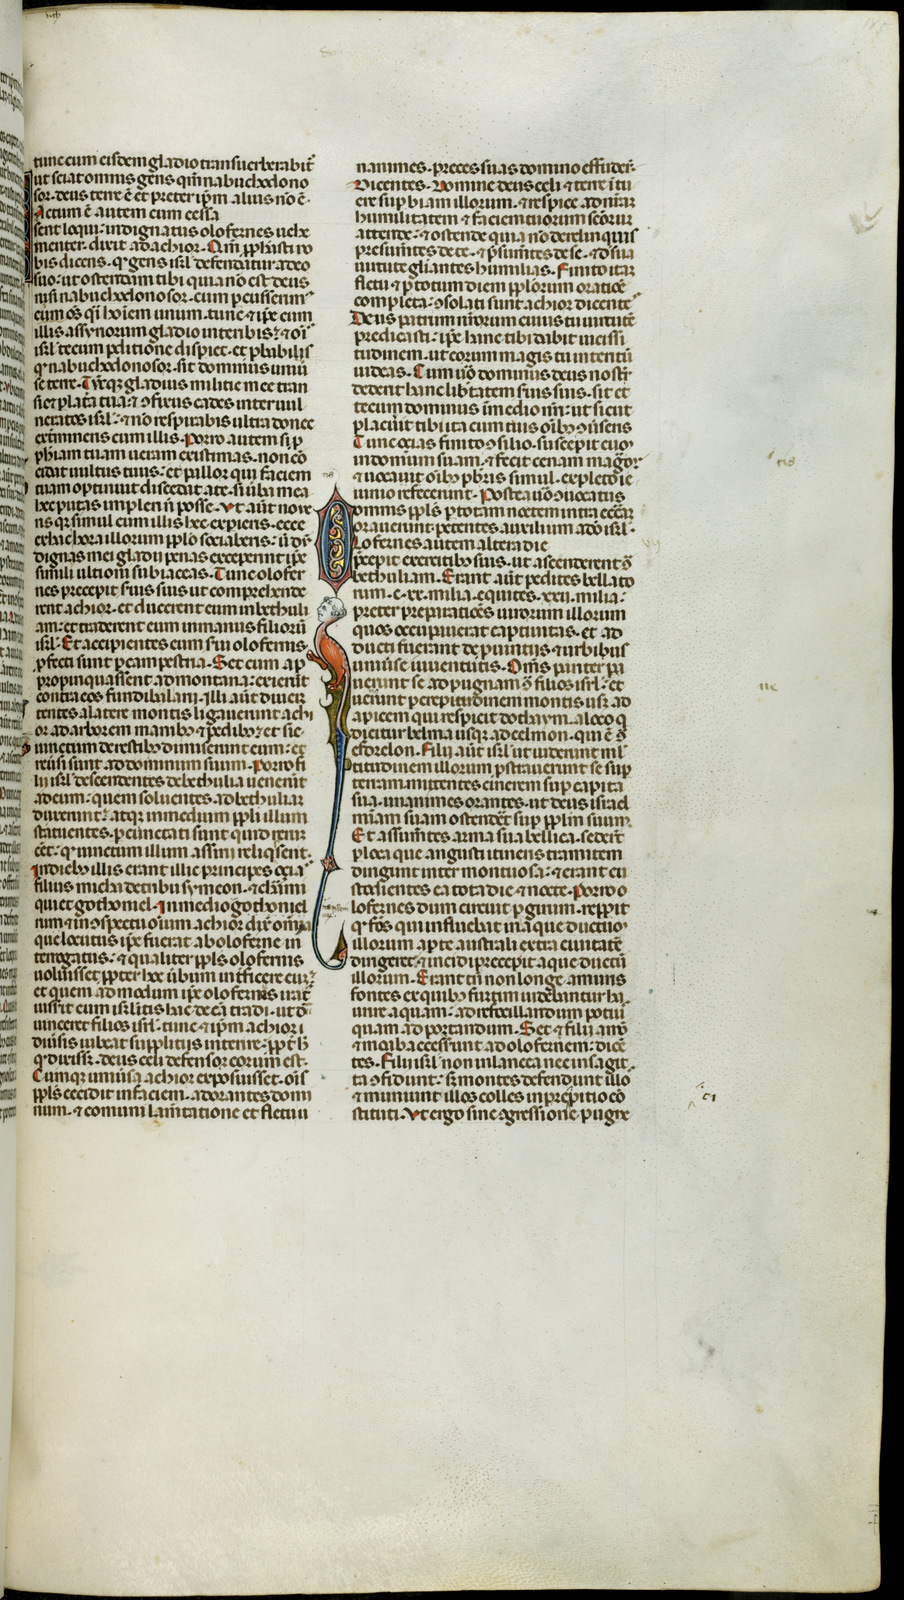 tunc cum eisdem gladio transuerberabit̃
ut sciat omnis gens qm̃ nabuchodono
sor deus terre ẽ et preter ip̃m alius no ẽ.
Actum ẽ autem cum cessa
sent loqui: indignatus olofernes uehe
menter dixit ad achior. Qm̃ ꝓphasti uo
bis dicens. ꝙ gens isrł defendatur a deo
suo: ut ostendam tibi quia no est deus
nisi nabuchodonosor. cum ꝑcusserim
eum õs q̃i hoiem unum. tunc ⁊ ip̃e cum
illis assyriorum gladio interibis: ⁊ oĩ
isrł tecum ꝑditione dispiet. et ꝓbabis
ꝙ nabuchodonosor sit dominus uniũ
se terre. Tũcꝗ gladius militie mee tran
siet ꝑ lat̃a tua: ⁊ ꝯfixus cades inter uul
neratos isrł: ⁊ no respirabis ultra donec
extermineris cum illis. Porro autem si ꝓ
phiam tuam ueram existimas. non ꝯci
dat uultus tuus: et pallor qui faciem
tuam optinuit discedat a te. si ũba mea
hec putas impleri ñ posse. Ut aũt noue
ris ꝙ simul cum illis hec expieris. ecce
ex hac hora illorum ꝓplo sociaberis: ũ dũ
dignas mei gladii penas exceperint ip̃e
simili ultioni subiaceas. Tunc olofer
nes precepit suis suis ut comprehende
rent achior. et ducerent eum in bethuli
am: et traderent eum in manus filiorũ
isrł. Et accipientes eum sui olofernis.
ꝓfecti sunt ꝑ campestria. Set cum ap
propinquassent ad montana: exierũt
contra eos fundibalarij. Illi aũt diuer
tentes a latere montis ligauerunt achi
or ad arborem manibꝫ ⁊ pedibꝫ: et sic
uinctum de restibꝫ dimiserunt eum: et
reũsi sunt ad dominum suum. Porro fi
lii isrł descendentes de bethulia uenerũt
ad eum: quem soluentes. ad bethuliã
duxerunt: atqꝫ in medium ꝓpli illum
statuentes. ꝑcunctati sunt quid rerum
eẽt: ꝙ uinctum illum assirii reliq̃sent.
In diebꝫ illis erant illic principes ozia
filius micha de tribu symeon. ⁊ charmi
qui et gothoniel. In medio gotoniel
rum ⁊ in ꝯspectu oium achior dix̃ omĩa
que locutus ip̃e fuerat ab oloferne in
terrogatus: ⁊ qualiter ꝓpls olofernis
uoluisset ꝓpter hoc ũbum int̃ficere eũ:
et quemadmodum ip̃e olofernes irat̃
iussit eum isrłitis hac de cã tradi. ut dũ
uinceret filios isrł. tunc ⁊ ip̃m achior i
diũsis iubeat suppliciis interire: ꝓpt̃ h̃
ꝙ dixisset. deus celi defensor eorum est.
Cumque uniũsa achior exposuisset. oĩs
ꝓpls cecidit in faciem. adorantes domi
num. ⁊ comuni lam̃tatione et fletu u
nanimes. preces suas domino effuder̃.
Dicentes. Domine deus celi ⁊ terre ĩtu
ere suꝑbiam illorum. ⁊ respice ad nr̃ã
humilitatem ⁊ faciem tuorum sc̃orum
attende: ⁊ ostende quia no derelinquis
presumẽtes de te. ⁊ p̃sumẽtes de se. ⁊ de sua
uirtute gl̃iantes humilias. Finito itaꝗ
fletu ⁊ ꝑ totum diem ꝓplorum oratiõe
completa: ꝯsolati sunt achior dicente͂
Deus patrum nr̃orum cuius tu uirtutẽ
predicasti: ip̃e hanc tibi dabit uicissi
tudinem. ut eorum magis tu interitũ
uideas. Cum uo dominus deus nost̃
dederit hanc lib̃tatem suis suis. sit et
tecum dominus in medio nr̃i: ut sicut
placuit tibi ita cum tuis oĩbꝫ ꝯuseris
Tunc ozias finito ꝯsilio. suscepit eum
in domum suam. ⁊ fecit cenam magnã
⁊ uocauit oĩbꝫ p̃bris simul. expleto ie
iunio refecerunt. Postea uo ꝯuocatus
omnis ꝓpls ꝑ totam noctem intra eccl̃iã
orauerunt. petentes auxilium a do isrł.
Olofernes autem altera die
precepit exercitibꝫ suis. ut ascenderent ꝯ̃
bethuliam. Erant aũt pedites bellato
rum .c. xx. milia. equites .xxii. milia:
preter preparatiões uirorum illorum
quos occupauerat captiuitas. et ad
ducti fuerant de ꝓuinciis ⁊ urbibus
uniũse iuuentutis. Om̃s pariter pa
uerunt se ad pugnam ꝯ̃ filios isrł: et
uenerunt ꝑ crepitudinem montis usꝗ ad
apicem qui respicit dothaim. a loco ꝗ
dicitur belma usqꝫ ad celmon. qui ẽ ꝯ̃
esdrelon. Filii aũt isrł ut uiderunt ml̃
titudinem illorum ꝓstrauerunt se suꝑ
terram. mittentes cinerem suꝑ capita
sua. unanimes orantes. ut deus israel
mĩam suam ostenderet suꝑ ꝓplm suum.
Et assumẽtes arma sua bellica. sederũt
ꝑ loca que angusti itineris tramitem
dirigunt inter montuosa: ⁊ erant cu
stodientes ea tota die ⁊ nocte. Porro o
lofernes dum circuit ꝑ girum. reꝑꝑit
ꝙ fõs qui influebat in aque ductum
illorum a ꝑte australi extra ciuitatẽ
dirigeret: ⁊ incidi precepit aque ductũ
illorum. Erant tñ non longe a muris
fontes ex quibꝫ furtim uidebantur ha
urire aquam: ad refocillandum potiũ
quam ad portandum. Set ⁊ filii amõ
⁊ moab accesserunt ad olofernem: dicẽ
tes. Filii isrł non in lancea nec in sagit
ta ꝯfidunt: s̃ montes defendunt illo
⁊ muniunt illos colles in precipitio cõ
stituti. Ut ergo sine ꝯgressione pugne